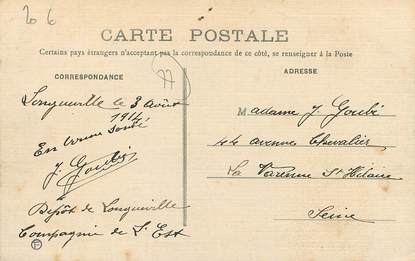 20 6
CARTE POSTALE
Certains pays étrangers n'acceptant pas la correspondance de ce côté, se renseigner à la Poste
CORRESPONDANCE
77
Longueville le 3 Août
1914
En bonne santé
J. Goubé
Dépôt de Longueville
Compagnie de l'Est
ADRESSE
Madame J. Goubé
44 avenue Chevalier
La Varenne St Hilaire
Seine